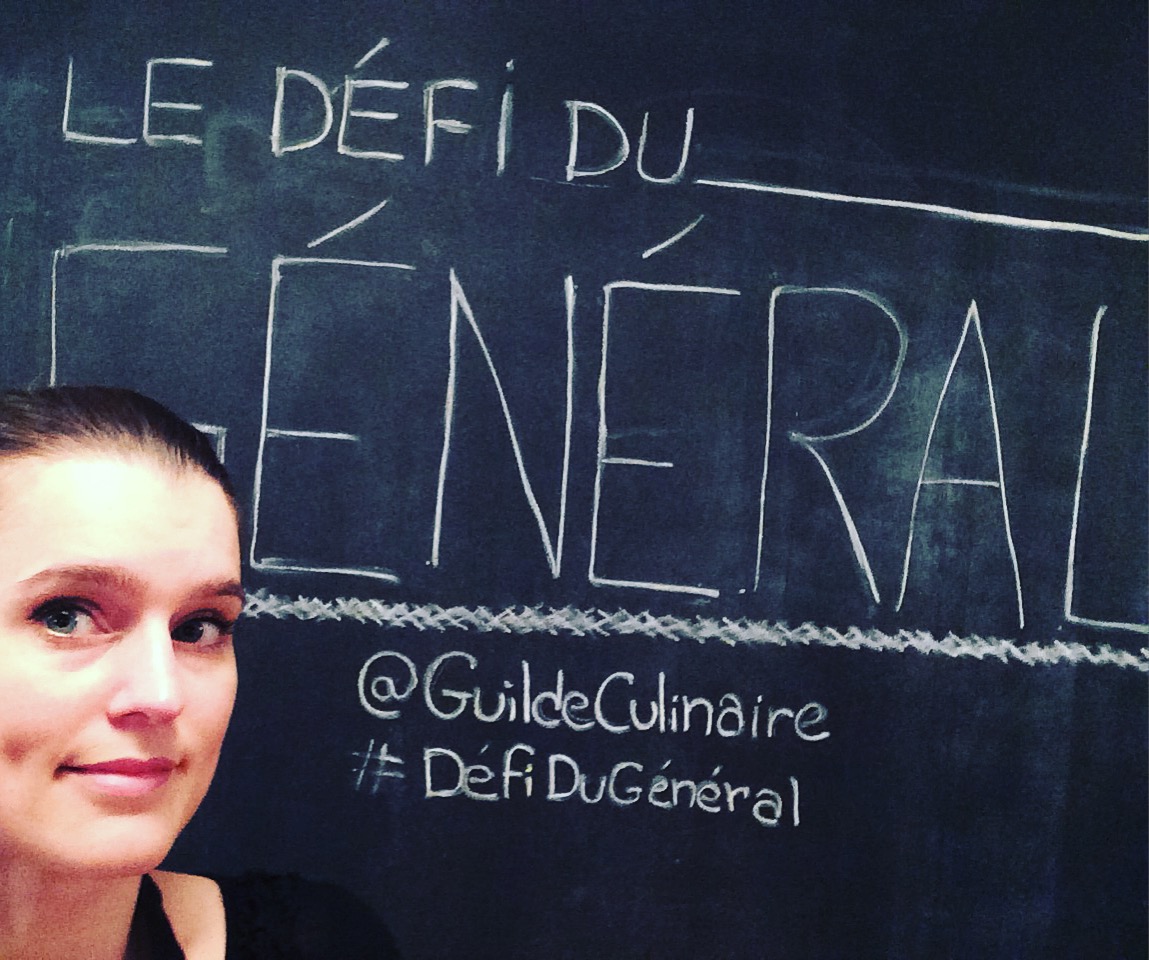 LE DÉFi DU
GÉNÉRAL
@GuildeCulinaire
#DéfiDuGénéral